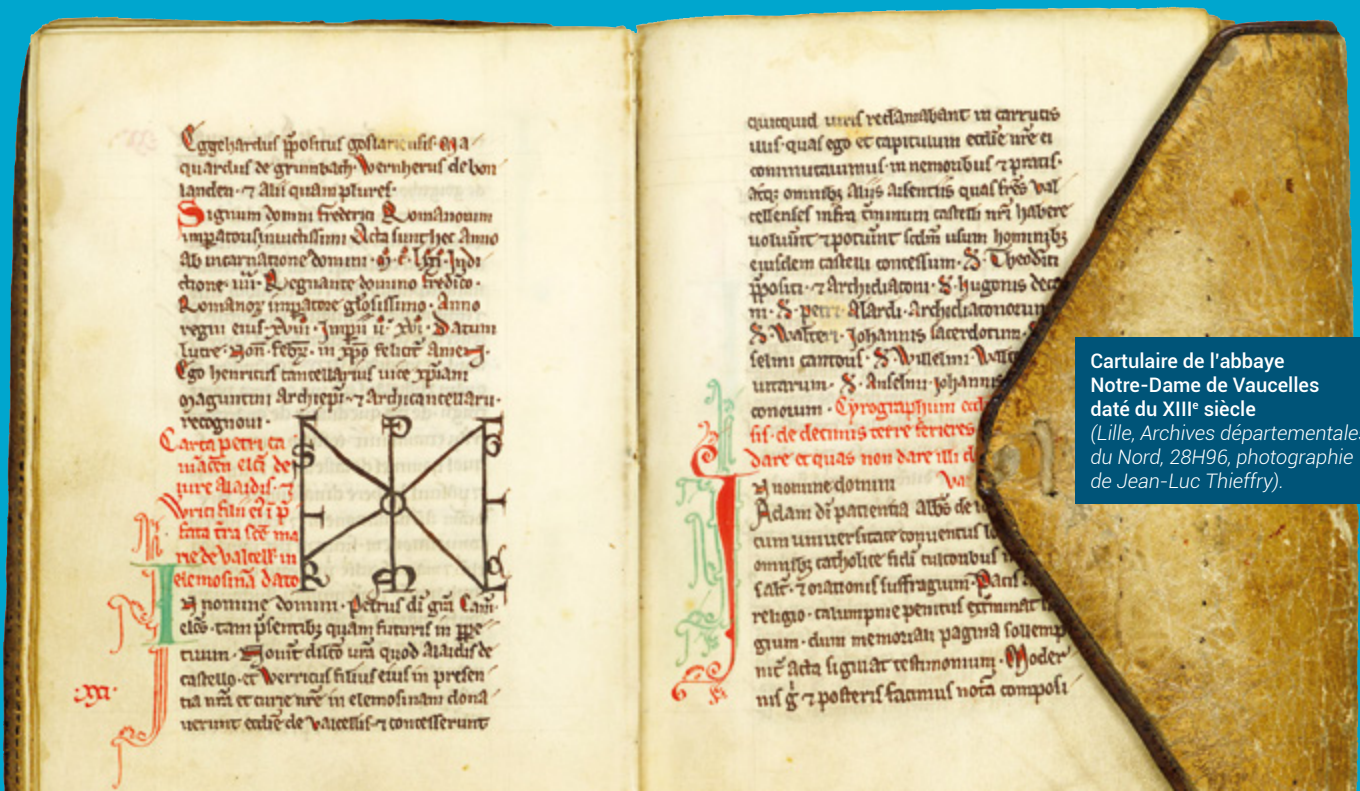 Eggehardus ppositus goslariensis. Ma
quardus de grumbach. Wernherus de bon
landen. ⁊ Alii quam plures.
Signum domni frederici Romanorum
impatoris inuictissimi Acta sunt hec Anno
ab incarnatione domini. Indi
ctione. iiii. Regnante domino fredico.
Romanoꝝ impatore gľosissimo. Anno
regni eius. xviii. Impii u. xvi. Datum
in xpo felicit amen.
Ego henricus cancellarius uice xpiani
maguntini Archiepi. ⁊ archicancellarii.
recognoui.
Carta petri ca
macen elci de
iure Alaidis. ⁊
Werici filii ei i p
fata tra sce ma
rie de valcell in
elemosina dato
S P E
I I
R M C
In nomine domini. Petrus di gra Cam.
elcs. tam psentibꝫ quam futuris in ppe
tuum. Nouit dilco ura quod Alaidis de
castello. et Werricus filius eius in presen
tia nra et curie nre in elemosinam dona
uerunt ecclie de Valcellis. ⁊ concesserunt
.xxi.
quicquid iuris reclamabant in carrucis
suis. quas ego et capitulum ecclie nre ei
commutauimus in nemoribus ⁊ pratis.
atqꝫ omnibꝫ aliis aisentiis quas fres val
cellenses infra tminum castelli nri habere
uoluint ⁊ potuint scdm usum hominibꝫ
eiusdem castelli concessum. S. Theodrici
ppositi. ⁊ archidiaconi. S. hugonis deca
ni. S. petri. Alardi. Archidiaconorum
S. Walteri. Johannis sacerdotum. S.
selmi cantoris. S. Willelmi. Walte
uitarum. S. Anselmi. Johannis
conorum. Cyrographum eccl
sis. de decimis terre ferieres
dare et quas non dare illi d
In nomine domini Val
Adam di patientia abbs de
cum uniuersitate conuentus
omnibꝫ catholice fidei cultoribus
salt. ⁊ orationis suffragium. Pacis
religio. calumpnie penitus exterminat
gium. dum memorialis pagina sollemp
nit acta signat testimonium. Moder
nis g ⁊ posteris facimus nota composi
Cartulaire de l'abbaye
Notre-Dame de Vaucelles
daté du XIIIᵉ siècle
(Lille, Archives départementales
du Nord, 28H96, photographie
de Jean-Luc Thieffry).